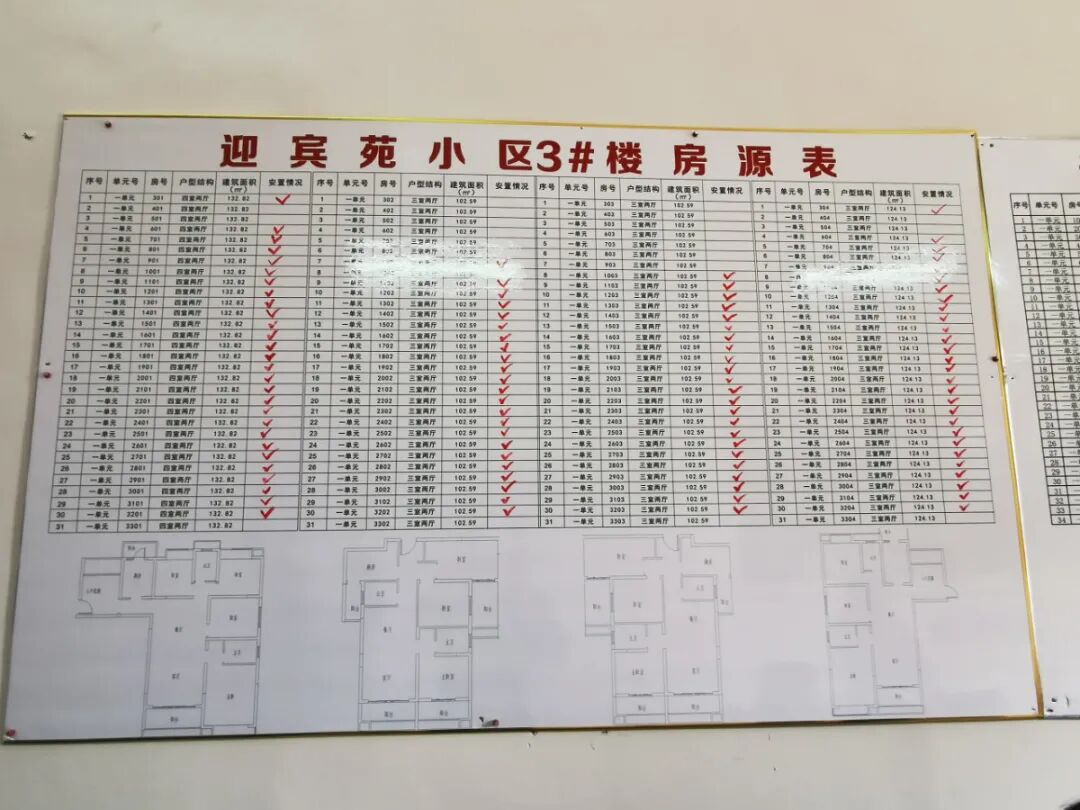 迎宾苑小区3#楼房源表
序号 单元号 房号 户型结构 建筑面积(㎡) 安置情况 序号 单元号 房号 户型结构 建筑面积(㎡) 安置情况 序号 单元号 房号 户型结构 建筑面积(㎡) 安置情况 序号 单元号 房号 户型结构 建筑面积(㎡) 安置情况
1 一单元 301 四室两厅 132.82 ✓ 1 一单元 302 三室两厅 102.59 1 一单元 303 三室两厅 102.59 1 一单元 304 三室两厅 124.13 ✓
2 一单元 401 四室两厅 132.82 2 一单元 402 三室两厅 102.59 2 一单元 403 三室两厅 102.59 2 一单元 404 三室两厅 124.13
3 一单元 501 四室两厅 132.82 3 一单元 502 三室两厅 102.59 3 一单元 503 三室两厅 102.59 3 一单元 504 三室两厅 124.13
4 一单元 601 四室两厅 132.82 ✓ 4 一单元 602 三室两厅 102.59 4 一单元 603 三室两厅 102.59 4 一单元 604 三室两厅 124.13 ✓
5 一单元 701 四室两厅 132.82 ✓ 5 一单元 三室两厅 102.59 5 一单元 703 三室两厅 102.59 5 一单元 704 三室两厅 124.13 ✓
6 一单元 801 四室两厅 132.82 ✓ 6 一单元 三室两厅 102.59 6 一单元 803 三室两厅 102.59 6 一单元 804 三室两厅 124.13 ✓
7 一单元 901 四室两厅 132.82 ✓ 7 一单元 三室两厅 102.59 ✓ 7 一单元 903 三室两厅 102.59 7 124.13 ✓
8 一单元 1001 四室两厅 132.82 ✓ 8 一单元 三室两厅 102.59 8 一单元 1003 三室两厅 102.59 ✓ 8 124.13 ✓
9 一单元 1101 四室两厅 132.82 ✓ 9 一单元 三室两厅 102.59 ✓ 9 一单元 1103 三室两厅 102.59 ✓ 9 三室两厅 124.13 ✓
10 一单元 1201 四室两厅 132.82 ✓ 10 一单元 1202 三室两厅 102.59 ✓ 10 一单元 1203 三室两厅 102.59 ✓ 10 一单元 1204 三室两厅 124.13 ✓
11 一单元 1301 四室两厅 132.82 ✓ 11 一单元 1302 三室两厅 102.59 ✓ 11 一单元 1303 三室两厅 102.59 ✓ 11 一单元 1304 三室两厅 124.13 ✓
12 一单元 1401 四室两厅 132.82 ✓ 12 一单元 1402 三室两厅 102.59 ✓ 12 一单元 1403 三室两厅 102.59 ✓ 12 一单元 1404 三室两厅 124.13 ✓
13 一单元 1501 四室两厅 132.82 ✓ 13 一单元 1502 三室两厅 102.59 ✓ 13 一单元 1503 三室两厅 102.59 ✓ 13 一单元 1504 三室两厅 124.13 ✓
14 一单元 1601 四室两厅 132.82 ✓ 14 一单元 1602 三室两厅 102.59 ✓ 14 一单元 1603 三室两厅 102.59 ✓ 14 一单元 1604 三室两厅 124.13 ✓
15 一单元 1701 四室两厅 132.82 ✓ 15 一单元 1702 三室两厅 102.59 ✓ 15 一单元 1703 三室两厅 102.59 ✓ 15 一单元 1704 三室两厅 124.13 ✓
16 一单元 1801 四室两厅 132.82 ✓ 16 一单元 1802 三室两厅 102.59 ✓ 16 一单元 1803 三室两厅 102.59 ✓ 16 一单元 1804 三室两厅 124.13 ✓
17 一单元 1901 四室两厅 132.82 ✓ 17 一单元 1902 三室两厅 102.59 ✓ 17 一单元 1903 三室两厅 102.59 ✓ 17 一单元 1904 三室两厅 124.13 ✓
18 一单元 2001 四室两厅 132.82 ✓ 18 一单元 2002 三室两厅 102.59 ✓ 18 一单元 2003 三室两厅 102.59 ✓ 18 一单元 2004 三室两厅 124.13 ✓
19 一单元 2101 四室两厅 132.82 ✓ 19 一单元 2102 三室两厅 102.59 ✓ 19 一单元 2103 三室两厅 102.59 ✓ 19 一单元 2104 三室两厅 124.13 ✓
20 一单元 2201 四室两厅 132.82 ✓ 20 一单元 2202 三室两厅 102.59 ✓ 20 一单元 2203 三室两厅 102.59 ✓ 20 一单元 2204 三室两厅 124.13 ✓
21 一单元 2301 四室两厅 132.82 ✓ 21 一单元 2302 三室两厅 102.59 ✓ 21 一单元 2303 三室两厅 102.59 ✓ 21 一单元 2304 三室两厅 124.13 ✓
22 一单元 2401 四室两厅 132.82 ✓ 22 一单元 2402 三室两厅 102.59 ✓ 22 一单元 2403 三室两厅 102.59 ✓ 22 一单元 2404 三室两厅 124.13 ✓
23 一单元 2501 四室两厅 132.82 ✓ 23 一单元 2502 三室两厅 102.59 23 一单元 2503 三室两厅 102.59 ✓ 23 一单元 2504 三室两厅 124.13 ✓
24 一单元 2601 四室两厅 132.82 ✓ 24 一单元 2602 三室两厅 102.59 ✓ 24 一单元 2603 三室两厅 102.59 ✓ 24 一单元 2604 三室两厅 124.13 ✓
25 一单元 2701 四室两厅 132.82 ✓ 25 一单元 2702 三室两厅 102.59 ✓ 25 一单元 2703 三室两厅 102.59 ✓ 25 一单元 2704 三室两厅 124.13 ✓
26 一单元 2801 四室两厅 132.82 ✓ 26 一单元 2802 三室两厅 102.59 ✓ 26 一单元 2803 三室两厅 102.59 ✓ 26 一单元 2804 三室两厅 124.13 ✓
27 一单元 2901 四室两厅 132.82 ✓ 27 一单元 2902 三室两厅 102.59 ✓ 27 一单元 2903 三室两厅 102.59 ✓ 27 一单元 2904 三室两厅 124.13 ✓
28 一单元 3001 四室两厅 132.82 ✓ 28 一单元 3002 三室两厅 102.59 ✓ 28 一单元 3003 三室两厅 102.59 ✓ 28 一单元 3004 三室两厅 124.13 ✓
29 一单元 3101 四室两厅 132.82 ✓ 29 一单元 3102 三室两厅 102.59 ✓ 29 一单元 3103 三室两厅 102.59 ✓ 29 一单元 3104 三室两厅 124.13 ✓
30 一单元 3201 四室两厅 132.82 ✓ 30 一单元 3202 三室两厅 102.59 ✓ 30 一单元 3203 三室两厅 102.59 ✓ 30 一单元 3204 三室两厅 124.13 ✓
31 一单元 3301 四室两厅 132.82 31 一单元 3302 三室两厅 102.59 31 一单元 3303 三室两厅 102.59 31 一单元 3304 三室两厅 124.13
序号 单元号 房号